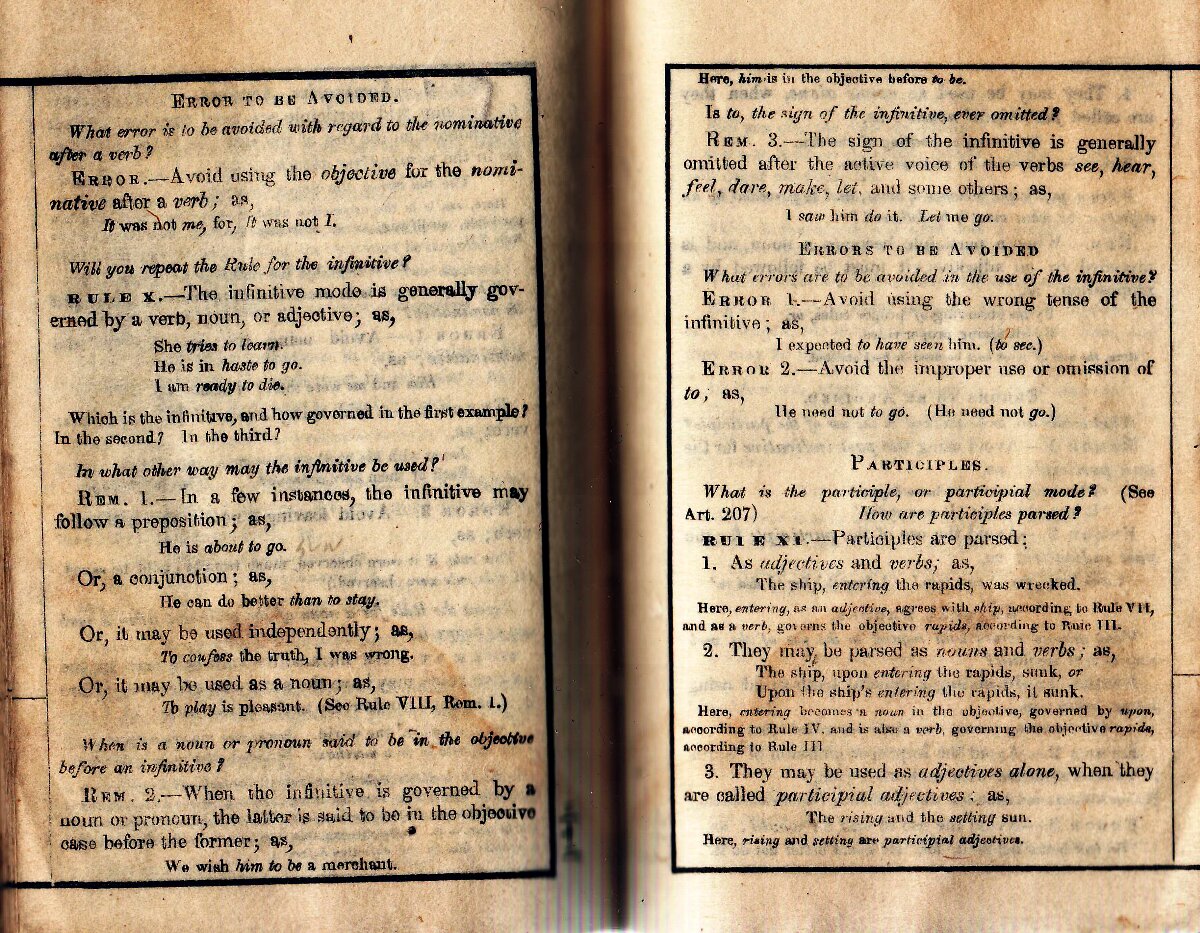 ERROR TO BE AVOIDED.
What error is to be avoided with regard to the nominative
after a verb?
ERROR.—Avoid using the objective for the nomi-
native after a verb; as,
It was not me, for, It was not I.
Will you repeat the Rule for the infinitive?
RULE X.—The infinitive mode is generally gov-
erned by a verb, noun, or adjective; as,
She tries to learn.
He is in haste to go.
I am ready to die.
Which is the infinitive, and how governed in the first example?
In the second? In the third?
In what other way may the infinitive be used?
REM. 1.—In a few instances, the infinitive may
follow a preposition; as,
He is about to go.
Or, a conjunction; as,
He can do better than to stay.
Or, it may be used independently; as,
To confess the truth, I was wrong.
Or, it may be used as a noun; as,
To play is pleasant. (See Rule VIII, Rem. 1.)
When is a noun or pronoun said to be in the objective
before an infinitive?
REM. 2.—When the infinitive is governed by a
noun or pronoun, the latter is said to be in the objective
case before the former; as,
We wish him to be a merchant.
Here, him is in the objective before to be.
Is to, the sign of the infinitive, ever omitted?
REM. 3.—The sign of the infinitive is generally
omitted after the active voice of the verbs see, hear,
feel, dare, make, let, and some others; as,
I saw him do it. Let me go.
ERRORS TO BE AVOIDED
What errors are to be avoided in the use of the infinitive?
ERROR 1.—Avoid using the wrong tense of the
infinitive; as,
I expected to have seen him. (to see.)
ERROR 2.—Avoid the improper use or omission of
to; as,
He need not to go. (He need not go.)
PARTICIPLES.
What is the participle, or participial mode? (See
Art. 207) How are participles parsed?
RULE XI.—Participles are parsed:
1. As adjectives and verbs; as,
The ship, entering the rapids, was wrecked.
Here, entering, as an adjective, agrees with ship, according to Rule VII,
and as a verb, governs the objective rapids, according to Rule III.
2. They may be parsed as nouns and verbs; as,
The ship, upon entering the rapids, sunk, or
Upon the ship's entering the rapids, it sunk.
Here, entering becomes a noun in the objective, governed by upon,
according to Rule IV. and is also a verb, governing the objective rapids,
according to Rule III
3. They may be used as adjectives alone, when they
are called participial adjectives: as,
The rising and the setting sun.
Here, rising and setting are participial adjectives.